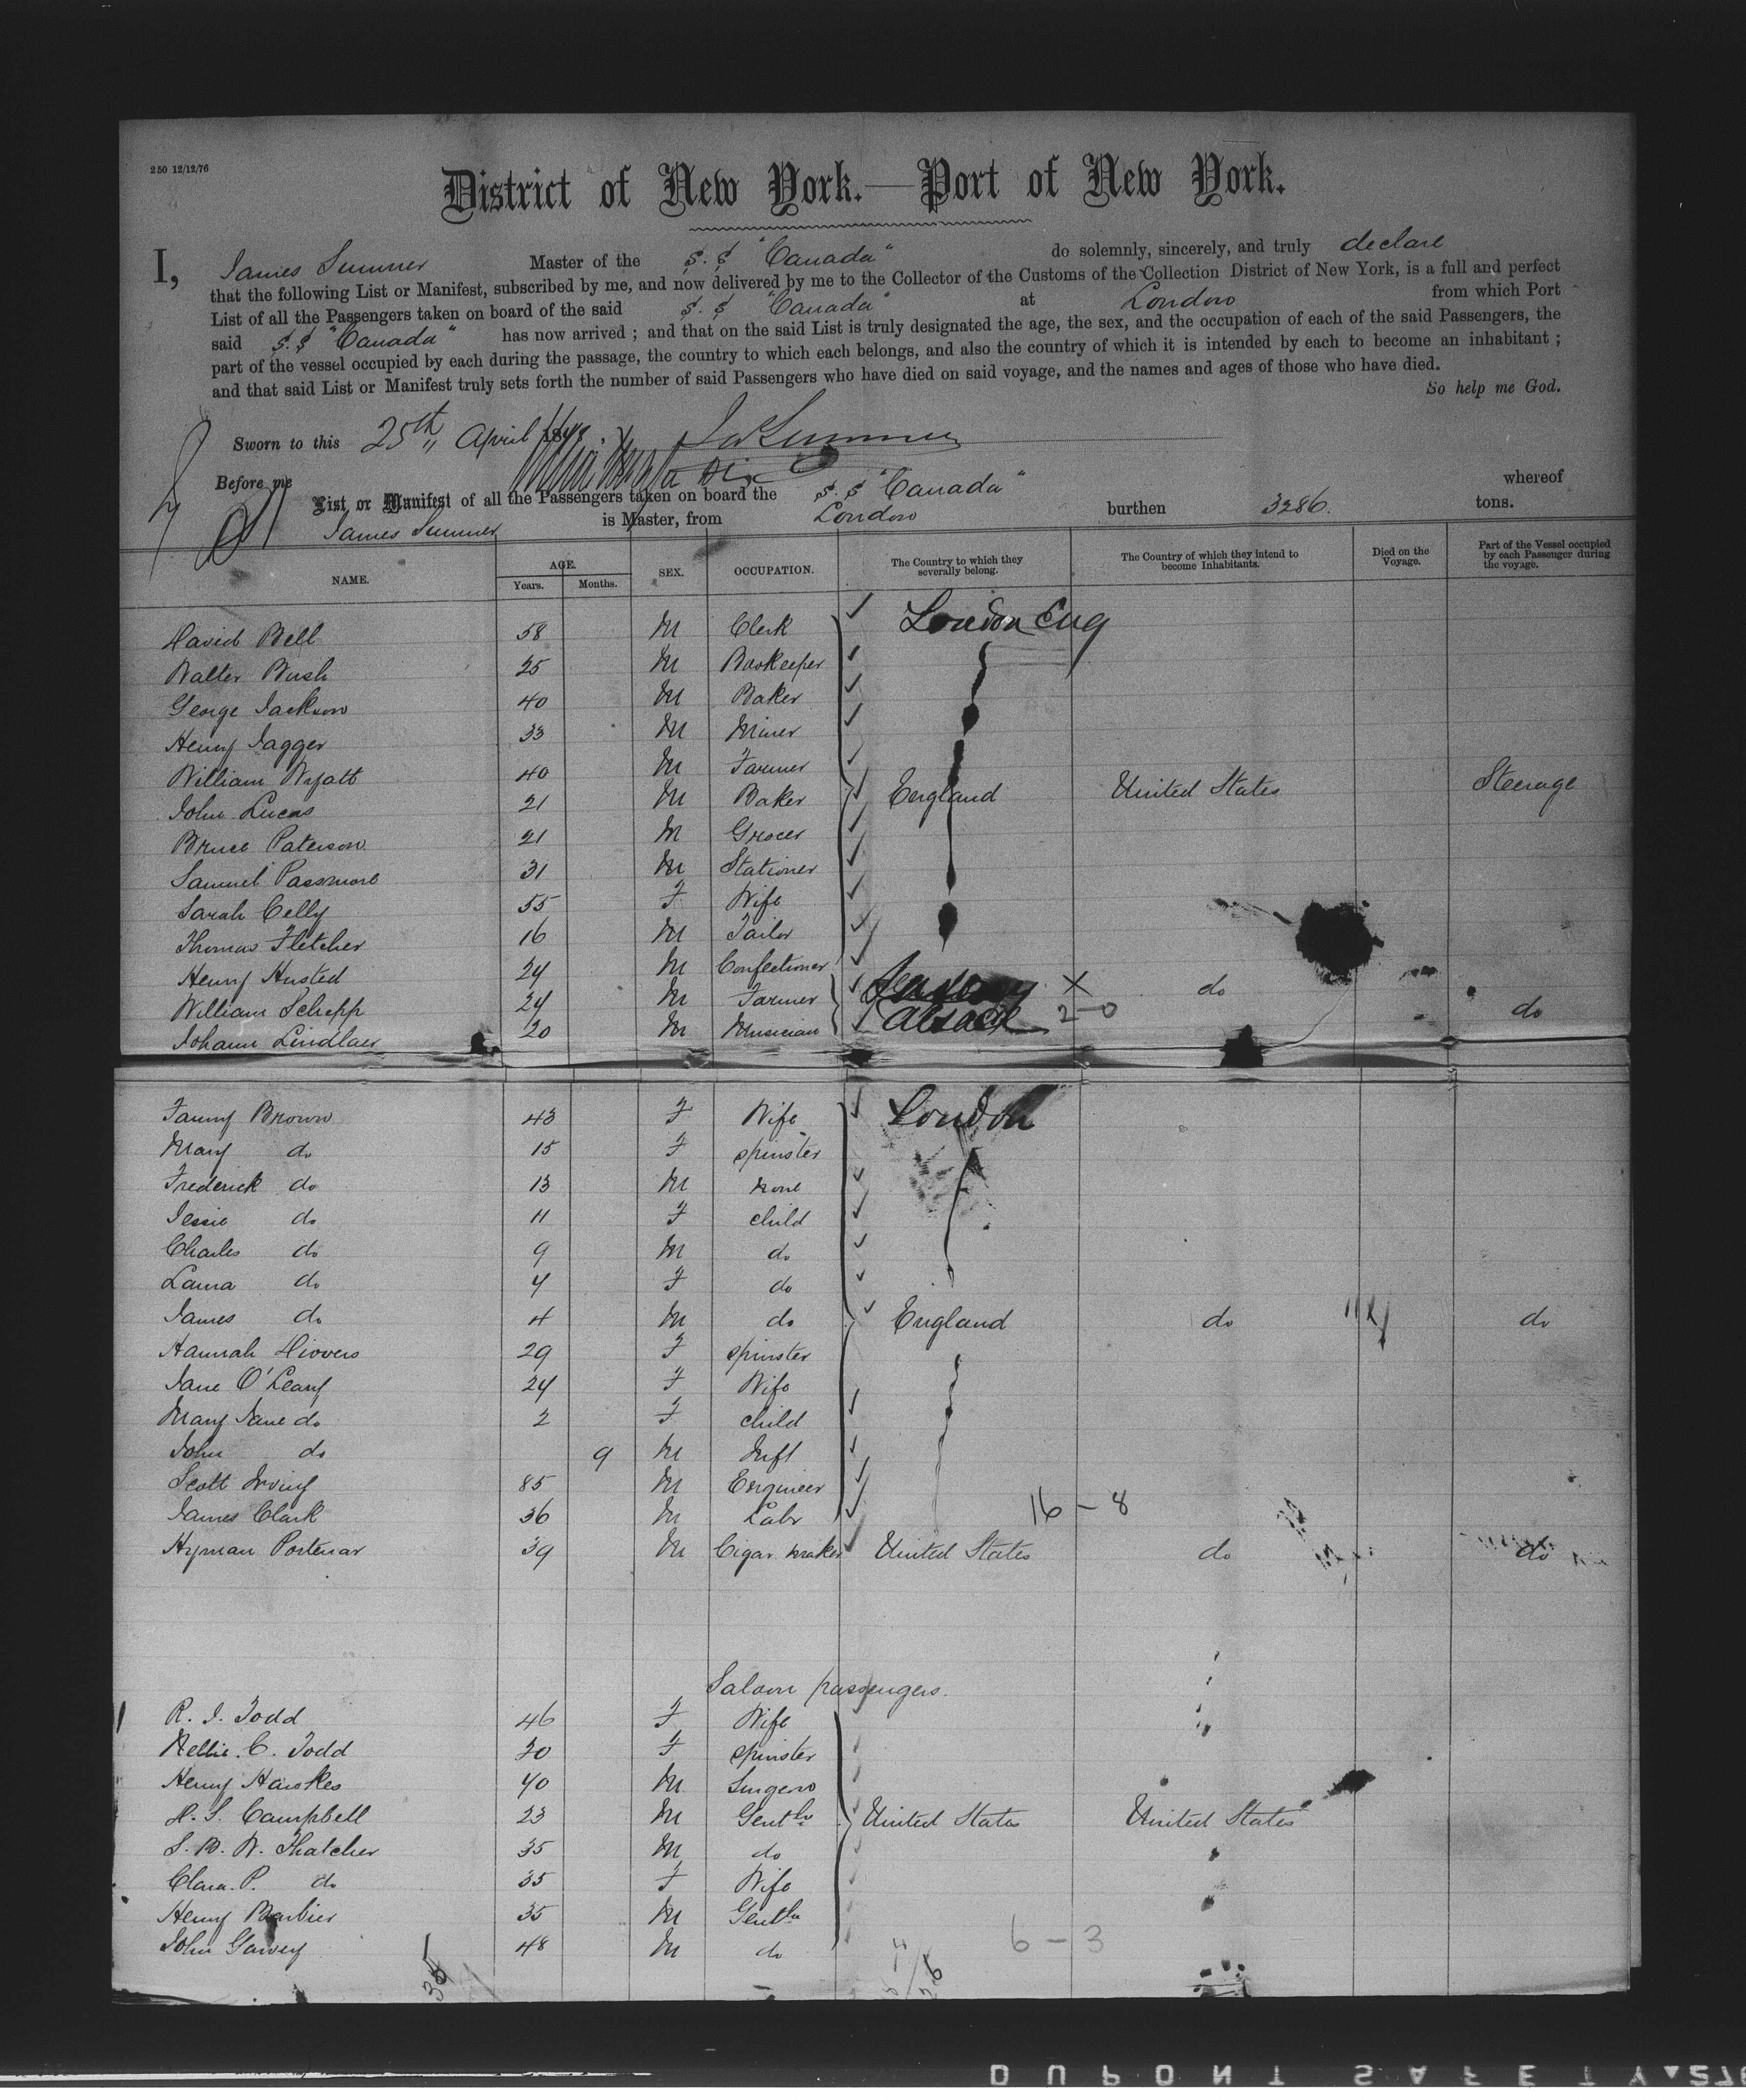 250 12/12/76
District of New York.—Port of New York.
I, James Sumner Master of the S.S "Canada" do solemnly, sincerely, and truly declare
that the following List or Manifest, subscribed by me, and now delivered by me to the Collector of the Customs of the Collection District of New York, is a full and perfect
List of all the Passengers taken on board of the said S.S "Canada" at London from which Port
said S.S "Canada" has now arrived ; and that on the said List is truly designated the age, the sex, and the occupation of each of the said Passengers, the
part of the vessel occupied by each during the passage, the country to which each belongs, and also the country of which it is intended by each to become an inhabitant ;
and that said List or Manifest truly sets forth the number of said Passengers who have died on said voyage, and the names and ages of those who have died.
So help me God.
Sworn to this 25th April Jas Sumner
Before me
List or Manifest of all the Passengers taken on board the S.S "Canada" whereof
James Sumner is Master, from London burthen 3286. tons.
NAME. AGE. Years. Months. SEX. OCCUPATION. The Country to which they severally belong. The Country of which they intend to become Inhabitants. Died on the Voyage. Part of the Vessel occupied by each Passenger during the voyage.
David Bell 58 M Clerk London Eng
Walter Bush 25 M Bookeeper
George Jackson 40 M Baker
Henry Jagger 33 M Miner
William Wyatt 40 M Farmer
John Lucas 21 M Baker England United States Steerage
Bruce Paterson 21 M Grocer
Samuel Passmore 31 M Stationer
Sarah Celly 55 F Wife
Thomas Fletcher 16 M Tailor
Henry Husted 24 M Confectioner
William Schepp 24 M Farmer X do
Johann Lindlaer 20 M Musician Alsace 2-0 do
Fanny Brown 43 F Wife London
Mary do 15 F spinster
Frederick do 13 M none
Jessie do 11 F child
Charles do 9 M do
Laura do 4 F do
James do 4 M do England do do
Hannah 29 F spinster
Jane O'Leary 24 F Wife
Mary Jane do 2 F child
John do 9 M Inft
Scott Irving 85 M Engineer
James Clark 36 M Labr 16 - 8
Hyman Portenar 39 M Cigar maker United States do do
Saloon passengers.
R. J. Todd 46 F Wife
Nellie. C. Todd 20 F spinster
Henry Hawkes 40 M Surgeon
H. S. Campbell 23 M Gentln United States United States
S. B. W. Thatcher 35 M do
Clara. P. do 35 F Wife
Henry Barbier 35 M Gentln
John Garvey 48 M do 6 - 3
DUPONT SAFETY